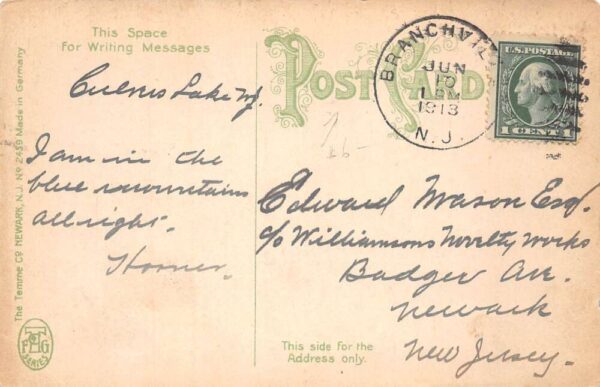 This Space
for Writing Messages
POST CARD
BRANCHVILLE
JUN
10
1913
N. J.
U.S. POSTAGE
1 CENT 1
Culvers Lake NJ.
I am in the
blue mountains
all right.
Horner.
Edward Mason Esq.
c/o Williamsons Novelty Works
Badger Ave.
Newark
New Jersey.
This side for the
Address only.
The Temme Co NEWARK, N.J. No 2459 Made in Germany
SERIES